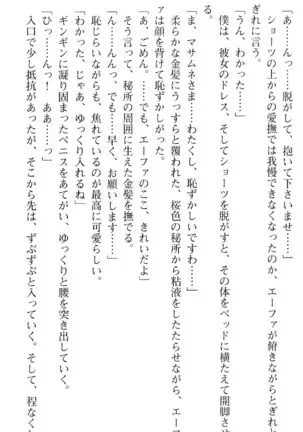 「あ……んっ……脱がして、抱いて下さいませ……」
ショーツの上からの愛撫では我慢できなくなったのか、エーファが俯きながらとぎれと
ぎれに言う。
「うん、わかった……」
僕は、彼女のドレス、そしてショーツを脱がすと、その体をベッドに横たえて開脚させ
る。
「ま、マサムネさま……わたくし、恥ずかしいですわ……」
柔らかな金髪にうっすらと覆われた、桜色の秘所から粘液をしたたらせながら、エーフ
ァは顔を背けて恥ずかしがった。
「あ、ごめん。……でも、エーファのここ、きれいだよ」
そう言って、秘所の周囲に生えた金髪を撫でる。
「ん……んっ、でも……早く、お願いします……」
恥じらいながらも、焦れているのが最高に可愛らしい。
「わかった、じゃあ、ゆっくり入れるね」
ギンギンに凝り固まったペニスをあてがい、ゆっくりと腰を突き出していく。
「ひっ……んっ！　ああ……っ」
入口で少し抵抗があったが、そこから先は、ずぶずぶと入っていく。そして、程なく